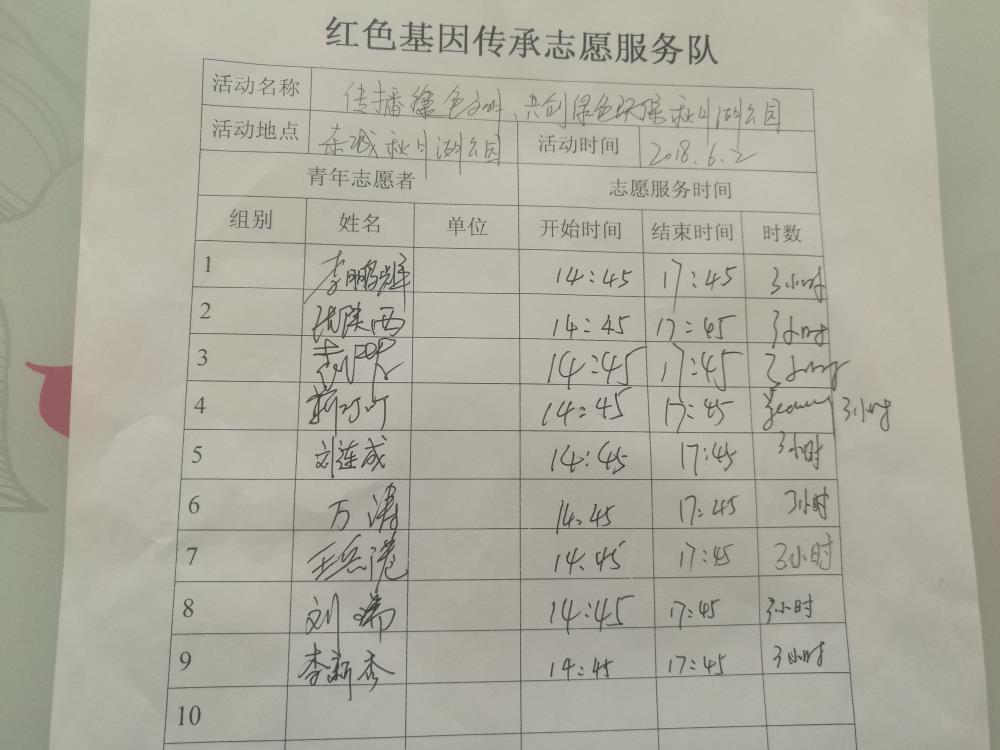 红色基因传承志愿服务队
活动名称 传播绿色文明、共创绿色环保秋月湖公园
活动地点 秋月湖公园 活动时间 2018.6.2
青年志愿者 志愿服务时间
组别 姓名 单位 开始时间 结束时间 时数
1 李鹏辉 14:45 17:45 3小时
2 陕西 14:45 17:45 3小时
3 14:45 17:45 3小时
4 14:45 17:45 3小时
5 刘连成 14:45 17:45 3小时
6 万涛 14:45 17:45 3小时
7 王 14:45 17:45 3小时
8 刘瑞 14:45 17:45 3小时
9 李新秀 14:45 17:45 3小时
10